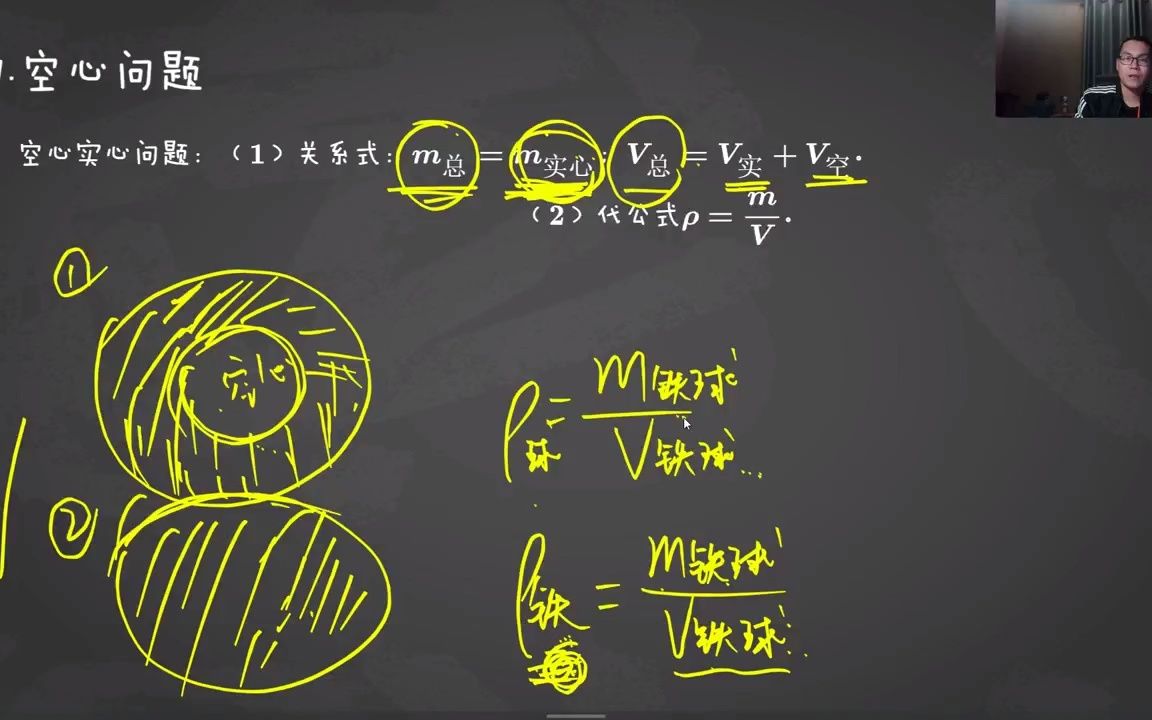 .空心问题
空心实心问题：（1）关系式：m总=m实心；V总=V实+V空.
（2）代公式ρ=m/V.
①
空心
ρ球=m铁球/V铁球
②
ρ铁=m铁球/V铁球